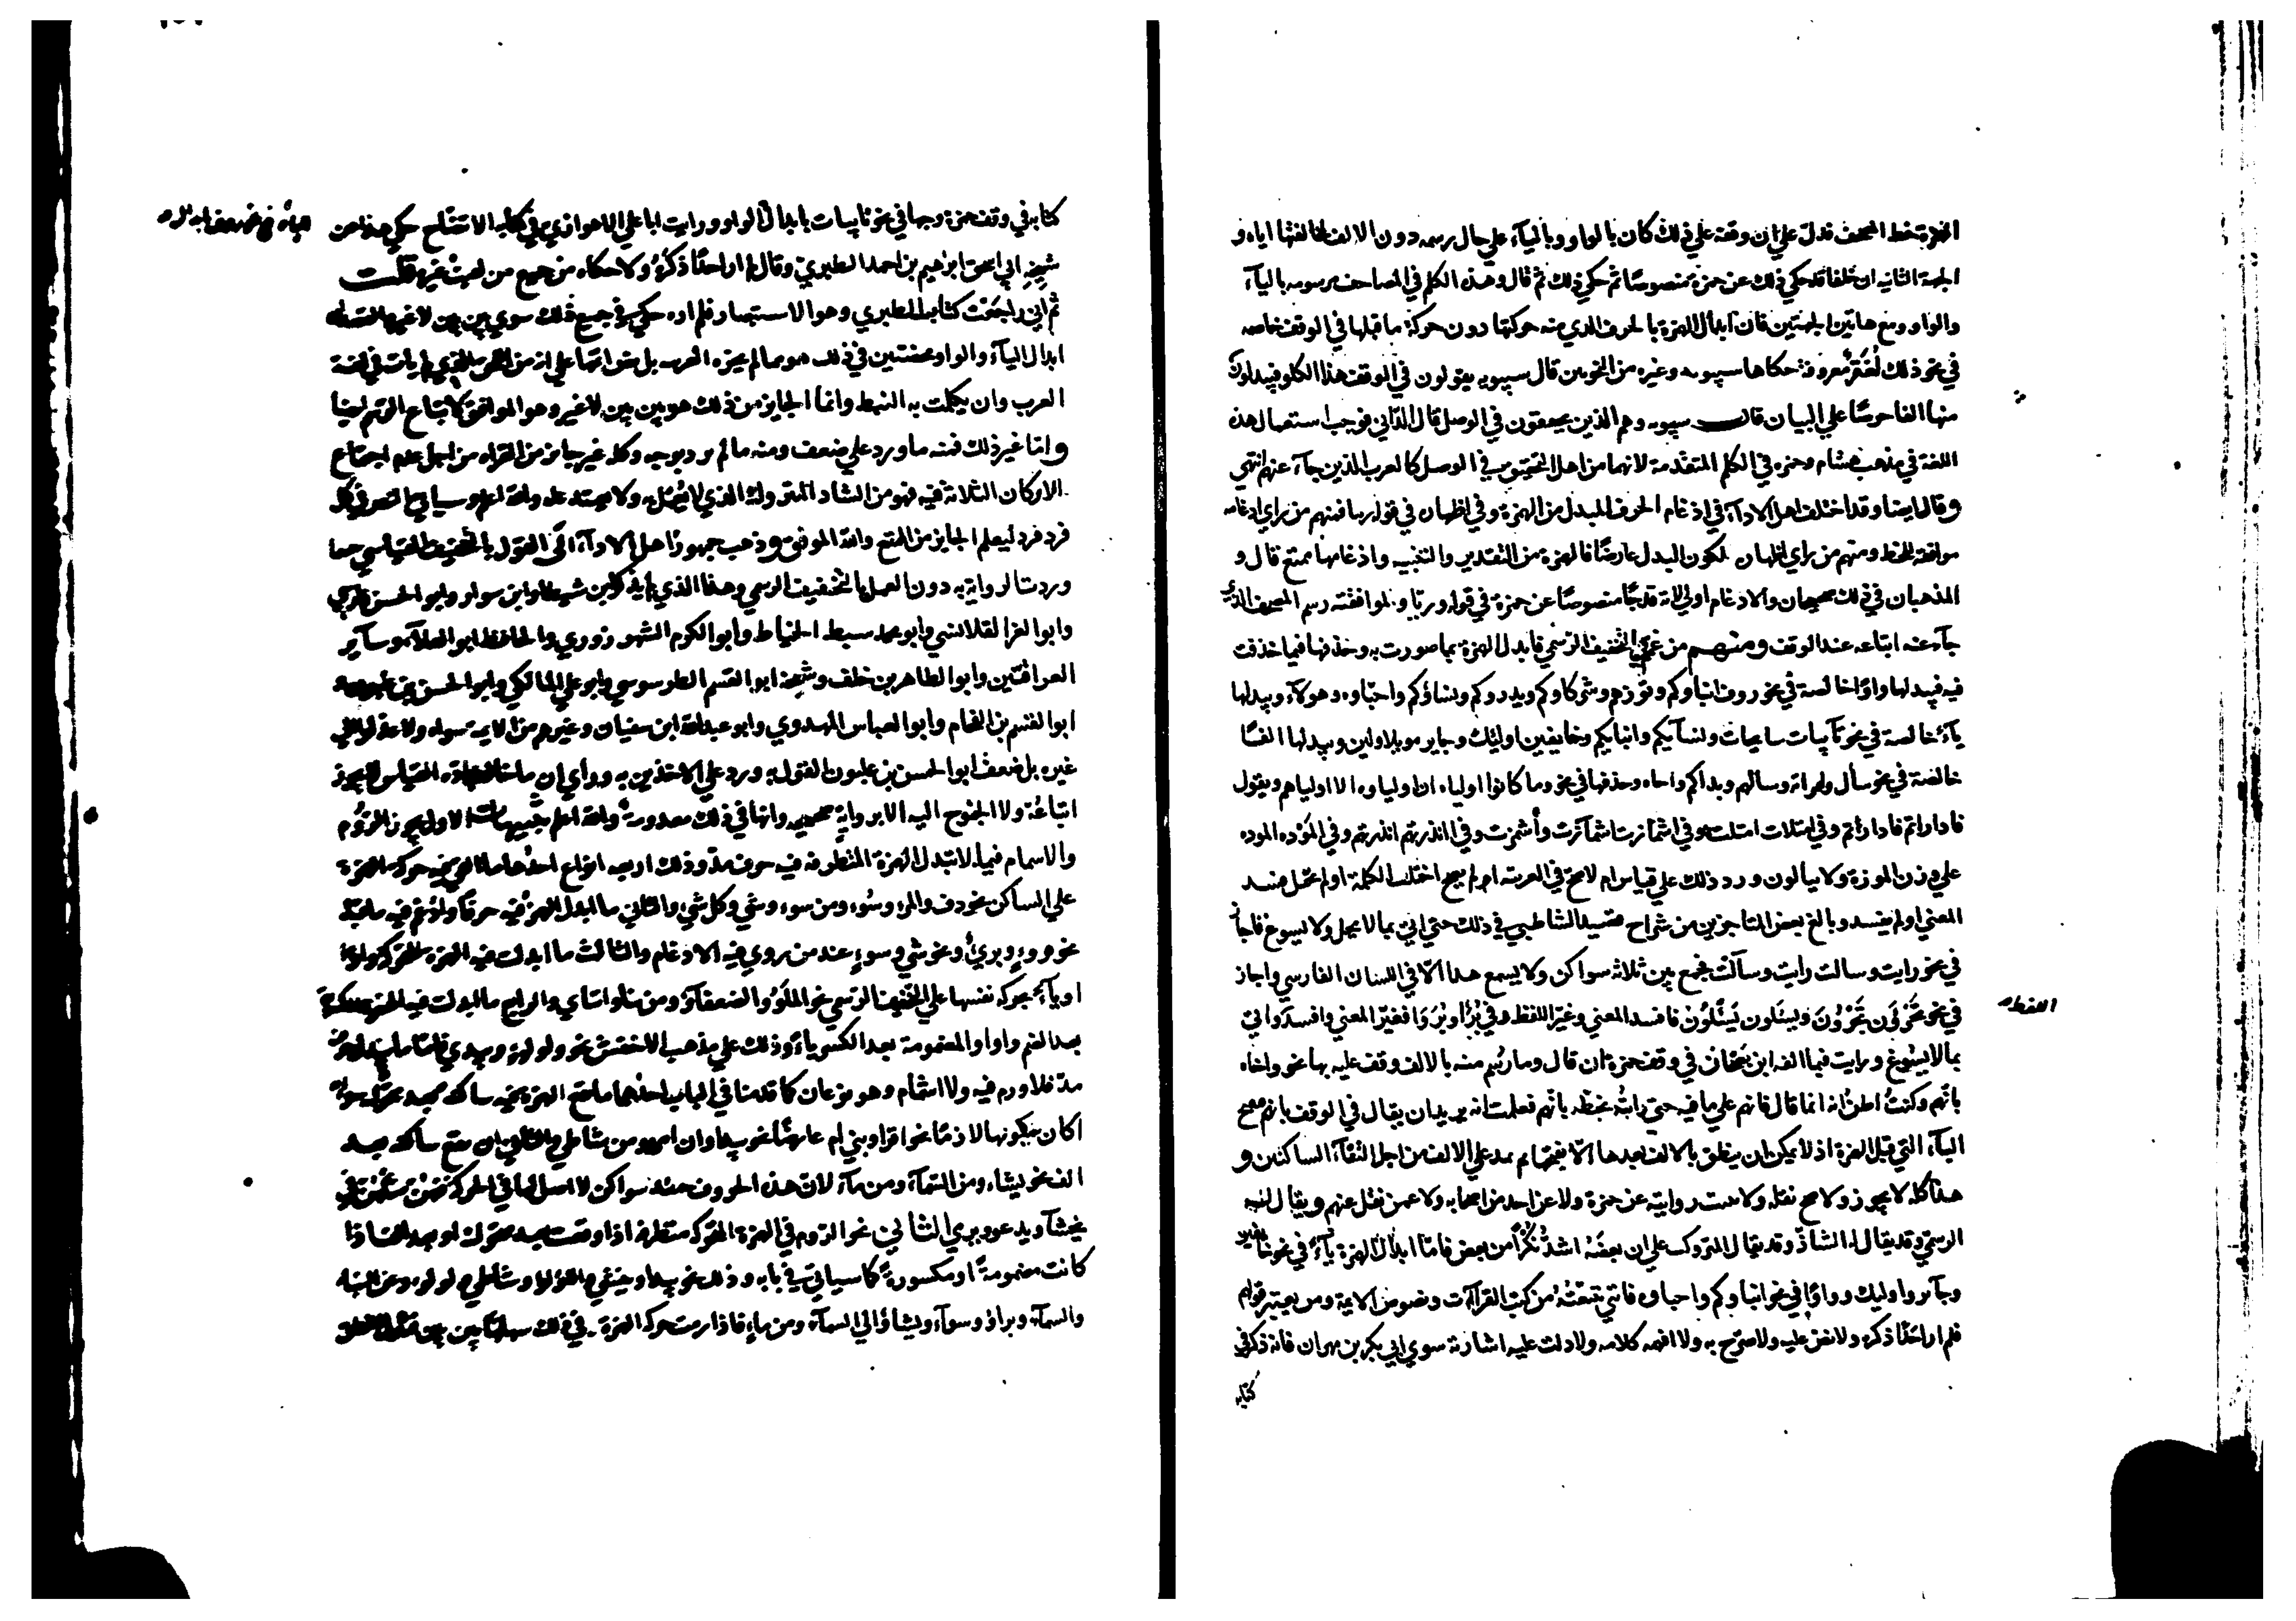 الهمزة بخط المصحف فدل علي ان وقفه علي ذلك كان بالواو وبالياء علي حال رسمه دون الالف لمخالفتها اياه و
الجهة الثانيه ان خلفا قد حكي ذلك عن حمزة منصوصا ثم حكي ذلك ثم قال وهذه الكلم في المصاحف مرسومه بالياء
والواو ومع هاتين الجهتين فان ابدال الهمزة بالحرف الذي منه حركتها دون حركة ما قبلها في الوقف خاصه
في نحو ذلك لغة معروفة حكاها سيبويه وغيره من النحويين قال سيبويه يقولون في الوقف هذا الكلو فيبدلون
منها الفا حرصا علي البيان قال سيبويه وهم الذين يحققون في الوصل قال الداني فوجب استعمال هذه
اللغة في مذهب هشام وحمزة في الكلم المتقدمة لانهما من اهل التحقيق في الوصل كالعرب الذين جاء عنهم انتهي
وقال ايضا وقد اختلف اهل الاداء في ادغام الحرف المبدل من الهمزة وفي اظهاره في قوله ريا فمنهم من راي ادغامه
موافقة للخط ومنهم من راي اظهاره لكون البدل عارضا فالهمزة من التقدير والنية وادغامها ممتنع قال و
المذهبان في ذلك صحيحان والادغام اولي لانه قد جا منصوصا عن حمزة في قوله وريا ولموافقته رسم المصحف الذي
جاء عنه اتباعه عند الوقف ومنهم من عمم التخفيف الرسمي فابدل الهمزة بما صورت به وحذفها فيما حذفت
فيه فيبدلها واوا خالصة في نحو روف ابناوكم وتوزهم وشركاوكم ويذروكم ونساؤكم واحباوه وهولاء ويبدلها
ياء خالصة في نحو تايبات سايحات ونسائكم وابنايكم وخايفين اوليك وجاير موبلا ولين ويبدلها الفا
خالصة في نحو سأل وامراته وسالهم وبداكم واخاه وحذفها في نحو وما كانوا اولياه ان اولياوه الا اولياهم ويقول
فادارأتم فادارتم وفي امتلات امتلت وفي اشمازت اشمأزت وأشمزت وفي اانذرتهم انذرتهم وفي الموده الموده
علي وزن الموزة ولا يبالون ورد ذلك علي قياس ام لا صح في العربية ام لم يصح اختلت الكلمة ام لم تختل فسد
المعني او لم يفسد وبالغ بعض المتاخرين من شراح قصيد الشاطبي في ذلك حتي اتي بما لا يحل ولا يسوغ فاجاز
في نحو رايت وسالت رايت وسآلت فجمع بين ثلاثة سواكن ولا يسمع هذا الا في اللسان الفارسي واجاز
في نحو تجرون تجرون ويسلون يسلون فافسد المعني وغير اللفظ وفي برآؤا بروا فغير المعني وافسد واتي
اللفظ
بما لا يسوغ ورايت فيما الفه ابن بصخان في وقف حمزة ان قال وما رسم منه بالالف وقف عليه بها نحو واخاه
بانهم وكنت اظن انه انما قال فانهم علي ما فيه حتي رايته بخطه بانهم فعلمت انه يريد ان يقال في الوقف بانهم فتح
الياء التي قبل الهمزة اذ لا يمكن ان ينطق بالالف بعدها الا بفتحها ثم يمد علي الالف من اجل التقاء الساكنين و
هذا كله لا يجوز ولا صح نقله ولا ثبتت روايته عن حمزة ولا عن احد من اصحابه ولا عمن نقل عنهم ويقال له
الرسمي وقد يقال له الشاذ وقد يقال المتروك علي ان بعضه اشد نكرا من بعض فاما ابدال الهمزة ياء في نحو خايفين
وجاير واوليك وواوا في نحو ابناوكم واحباوه فاني تتبعته من كتب القراآت ونصوص الايمة ومن يعتبر قولهم
فلم ار احدا ذكره ولا نص عليه ولا صرح به ولا افهمه كلامه ولا دلت عليه اشارته سوي ابي بكر بن مهران فانه ذكر في
كتابه
كتابه في وقف حمزة وجها في نحو تايبات بابدال الواو ورايت ابا علي الاهوازي في كتابه الاتضاح حكي هذا عن
شيخه ابي اسحق ابراهيم بن احمد الطبري وقال لم ار احدا ذكره ولا حكاه من جميع من لقيت غيره قلت
ثم اني راجعت كتاب الطبري وهو الاستبصار فلم اره حكي في جميع ذلك سوي بين بين لا غير والقصد ان
ابدال الياء والواو محضتين في ذلك هو مما لم يجزه العرب بل نص ائمتها علي انه من اللحن الذي لم يات في لغة
العرب وان تكلمت به النبط وانما الجايز من ذلك هو بين بين لا غير وهو الموافق لاتباع الرسم ايضا
واما غير ذلك فمنه ما ورد علي ضعف ومنه ما لم يرد بوجه وكله غير جايز من القراه من اجل عدم اجتماع
الاركان الثلاثة فيه فهو من الشاذ المتروك الذي لا يعمل به ولا يعتمد عليه والله اعلم وسياتي النص في كل
فرد فرد ليعلم الجايز من الممتنع والله الموفق وذهب جمهور اهل الاداء الي القول بالتخفيف القياسي حسبما
وردت الرواية به دون العمل بالتخفيف الرسمي وهذا الذي لم يذكر ابن شيطا وابن سوار وابو الحسن فارس
وابو العز القلانسي وابو محمد سبط الخياط وابو الكرم الشهرزوري والحافظ ابو العلاء وساير
العراقيين وابو الطاهر بن خلف وشيخه ابو القسم الطرسوسي وابو علي المالكي وابو الحسن بن غلبون
ابو القسم بن الفحام وابو العباس المهدوي وابو عبدالله ابن سفيان وغيرهم من الايمة سواه ولا عدلوا الي
غيره بل ضعف ابو الحسن بن غلبون القول به ورد علي الاخذين به ورأي ان ما خالف القياس لا يجوز
اتباعه ولا الجنوح اليه الا برواية صحيحه وانها في ذلك معدومة والله اعلم تنبيهات الاول يجوز الروم
والاشمام فيما لا تبدل الهمزة المتطرفه فيه حرف مد وذلك اربعه انواع احدها ما القي فيه حركة الهمزة
علي الساكن نحو دف والمرء وسوء ومن سوء وشي وكل شي والثاني ما ابدل الهمز فيه حرفا وادغم فيه ما قبله
نحو قروء وبريء ونحو شي وسوء عند من روي فيه الادغام والثالث ما ابدلت فيه الهمزة المتحركة واوا
او ياء بحركة نفسها علي التخفيف الرسمي نحو الملؤ والضعفاؤ ومن نباي وايتاي والرابع ما ابدلت فيه الهمزة المكسورة
بعد الضم واوا والمضمومة بعد الكسر ياء وذلك علي مذهب الاخفش نحو لولو ويبدي فاما ما يبدل حرف
مد فلا روم فيه ولا اشمام وهو نوعان كما قدمنا في الباب احدهما ما تقع الهمزة فيه ساكنه بعد متحرك سواء
اكان سكونها لازما نحو اقرا ونبي ام عارضا نحو يبدا وان امرو ومن شاطي والثاني ان تقع ساكنه بعد
الف نحو يشاء ومن السماء ومن ماء لان هذه الحروف حينئذ سواكن لا اصل لها في الحركة فهن مثلهن في
يخشي ويدعو ويرمي الثاني نحو الروم في الهمزة المتحركه متطرفه اذا وقعت بعد متحرك او بعد الف اذا
كانت مضمومة او مكسورة كما سياتي في بابه وذلك نحو يبدا وينشي واللولو وشاطي ولولو وعن النبا
والسماء وبراؤ وسوآء ويشاؤ الي السماء ومن ماء فاذا رمت حركة الهمزة في ذلك سهلتها بين بين